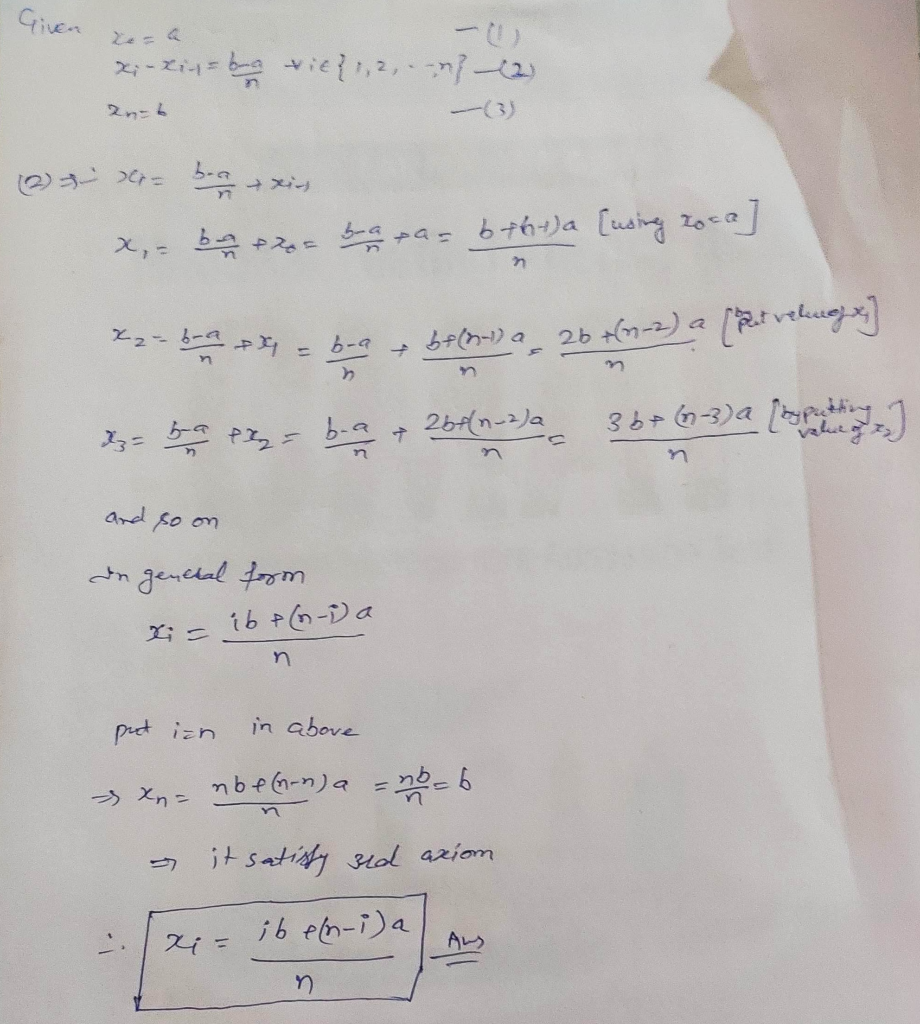 Given
x₀ = a —(1)
xᵢ - xᵢ₋₁ = (b-a)/n ∀ i ∈ {1, 2, ---, n} —(2)
xₙ = b —(3)
(2) ⇒ xᵢ = (b-a)/n + xᵢ₋₁
x₁ = (b-a)/n + x₀ = (b-a)/n + a = (b+(n-1)a)/n [using x₀ = a]
x₂ = (b-a)/n + x₁ = (b-a)/n + (b+(n-1)a)/n = (2b+(n-2)a)/n [put value of x₁]
x₃ = (b-a)/n + x₂ = (b-a)/n + (2b+(n-2)a)/n = (3b+(n-3)a)/n [by putting value of x₂]
and so on
In general form
xᵢ = (ib+(n-i)a)/n
put i=n in above
⇒ xₙ = (nb+(n-n)a)/n = nb/n = b
⇒ it satisfy 3rd axiom
∴ xᵢ = (ib+(n-i)a)/n Ans